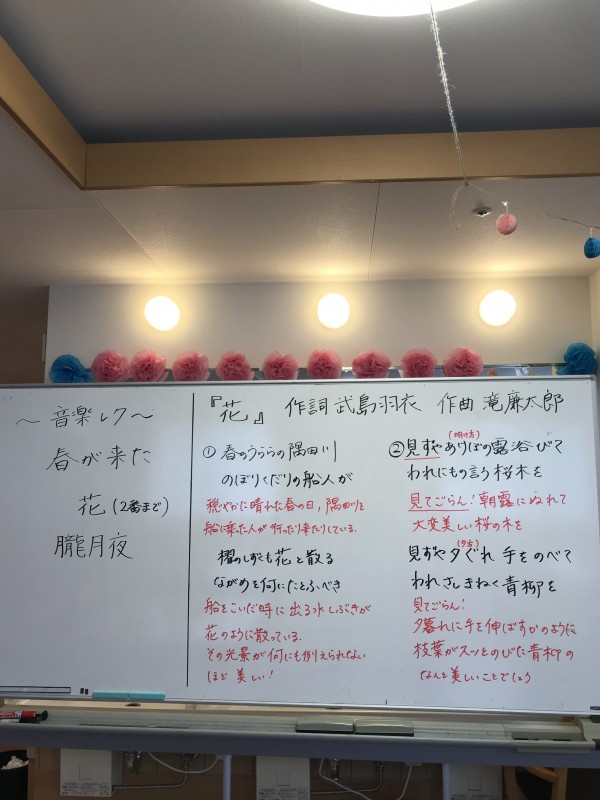 ～音楽レク～
春が来た
花(2番まで)
朧月夜
『花』 作詞 武島羽衣 作曲 滝廉太郎
① 春のうららの隅田川
のぼりくだりの船人が
穏やかに晴れた春の日、隅田川を
船に乗った人が行ったり来たりしている。
櫂のしずくも花と散る
ながめを何にたとふべき
船をこいだ時に出る水しぶきが
花のように散っている。
その光景が何にも例えられない
ほど美しい！
(明け方)
② 見ずやあけぼの露浴びて
われにもの言う桜木を
見てごらん！朝露にぬれて
大変美しい桜の木を
(夕方)
見ずや夕ぐれ手をのべて
われさしまねく青柳を
見てごらん！
夕暮れに手を伸ばすかのように
枝葉がスッとのびた青柳の
なんと美しいことでしょう